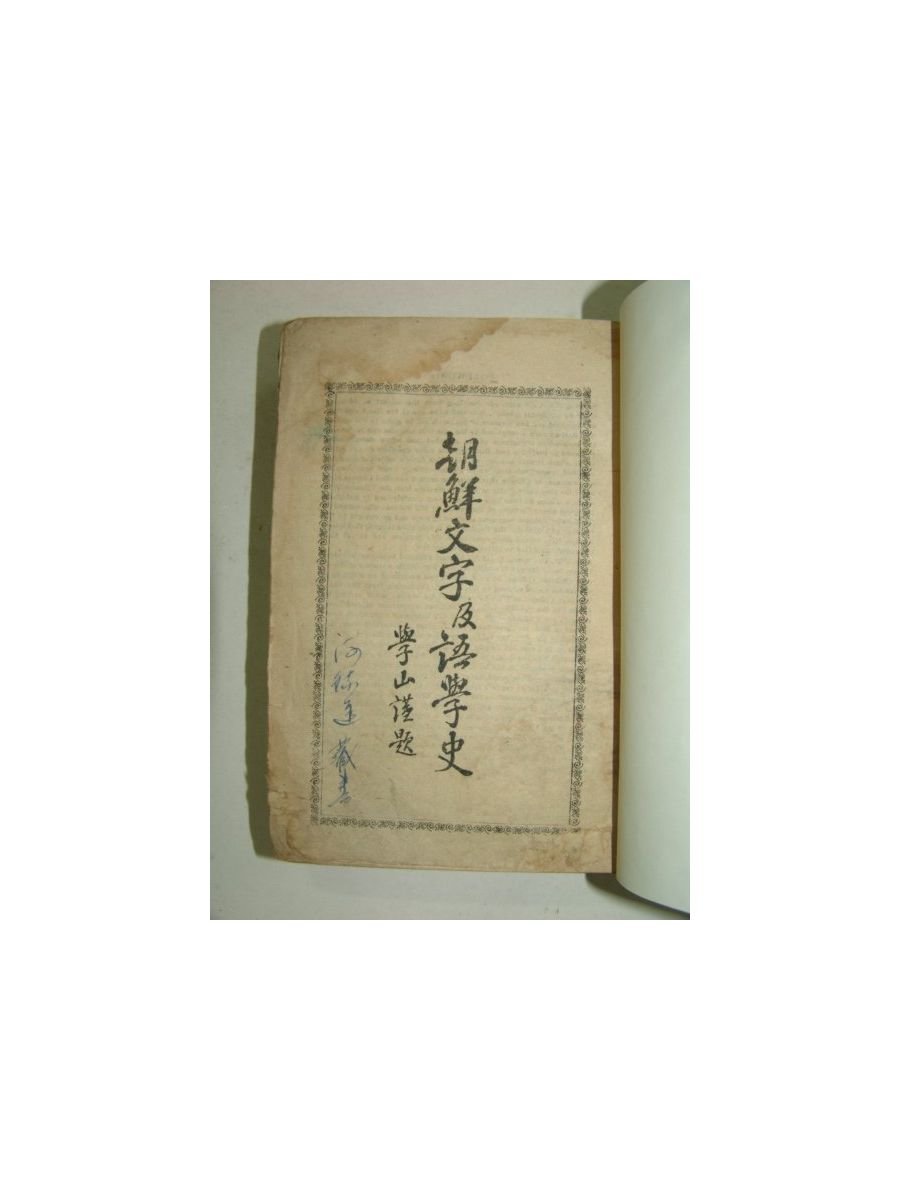 朝鮮文字及語學史
學山謹題
藏書